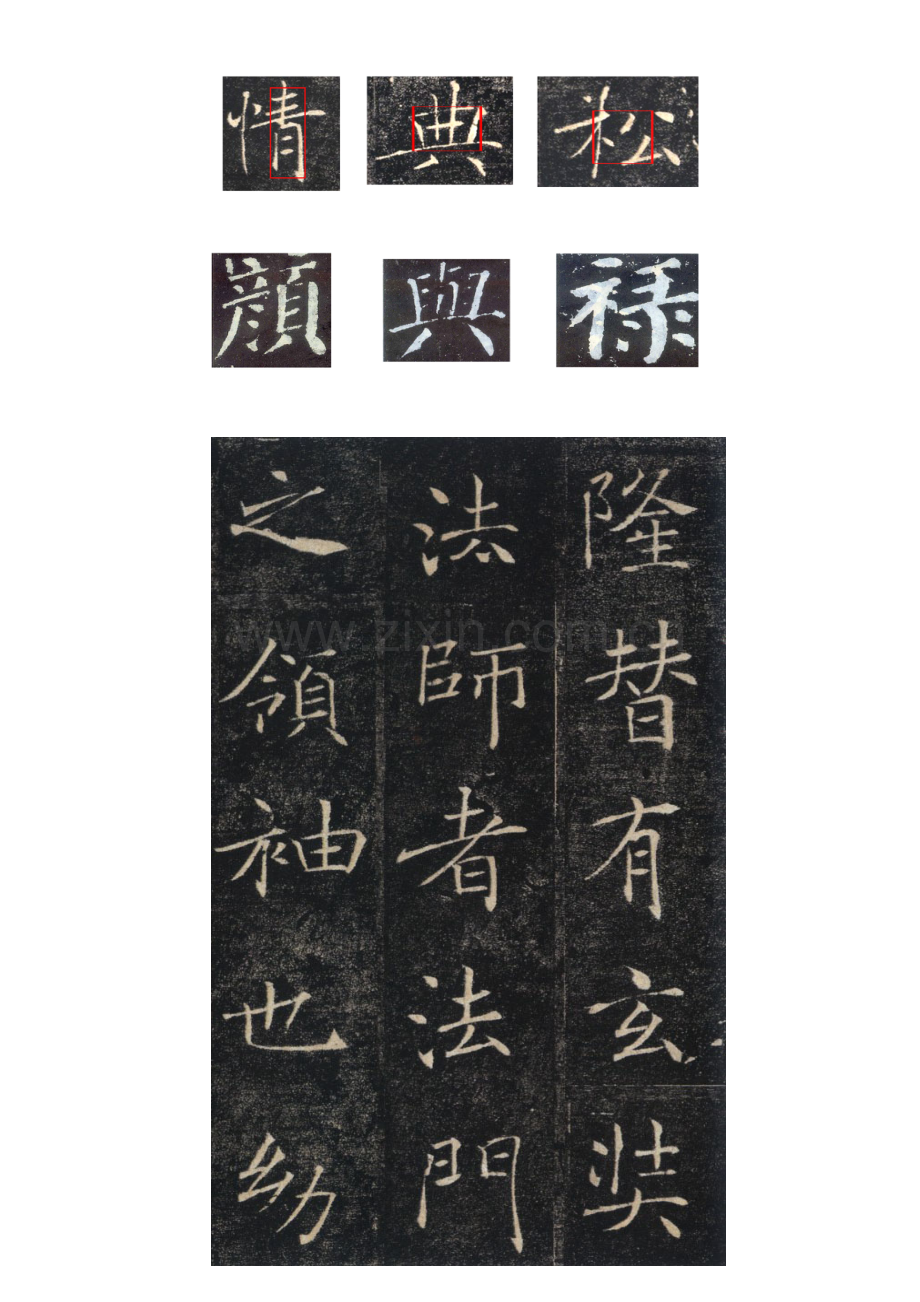 情 典 松
顔 與 禄
隆替有玄奘
法師者法門
之領袖也幼
www.zixin.com.cn